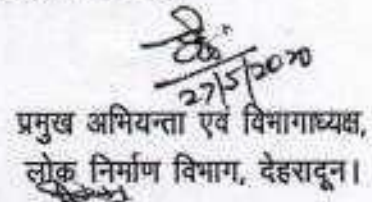 27/5/2020
प्रमुख अभियन्ता एवं विभागाध्यक्ष,
लोक निर्माण विभाग, देहरादून।